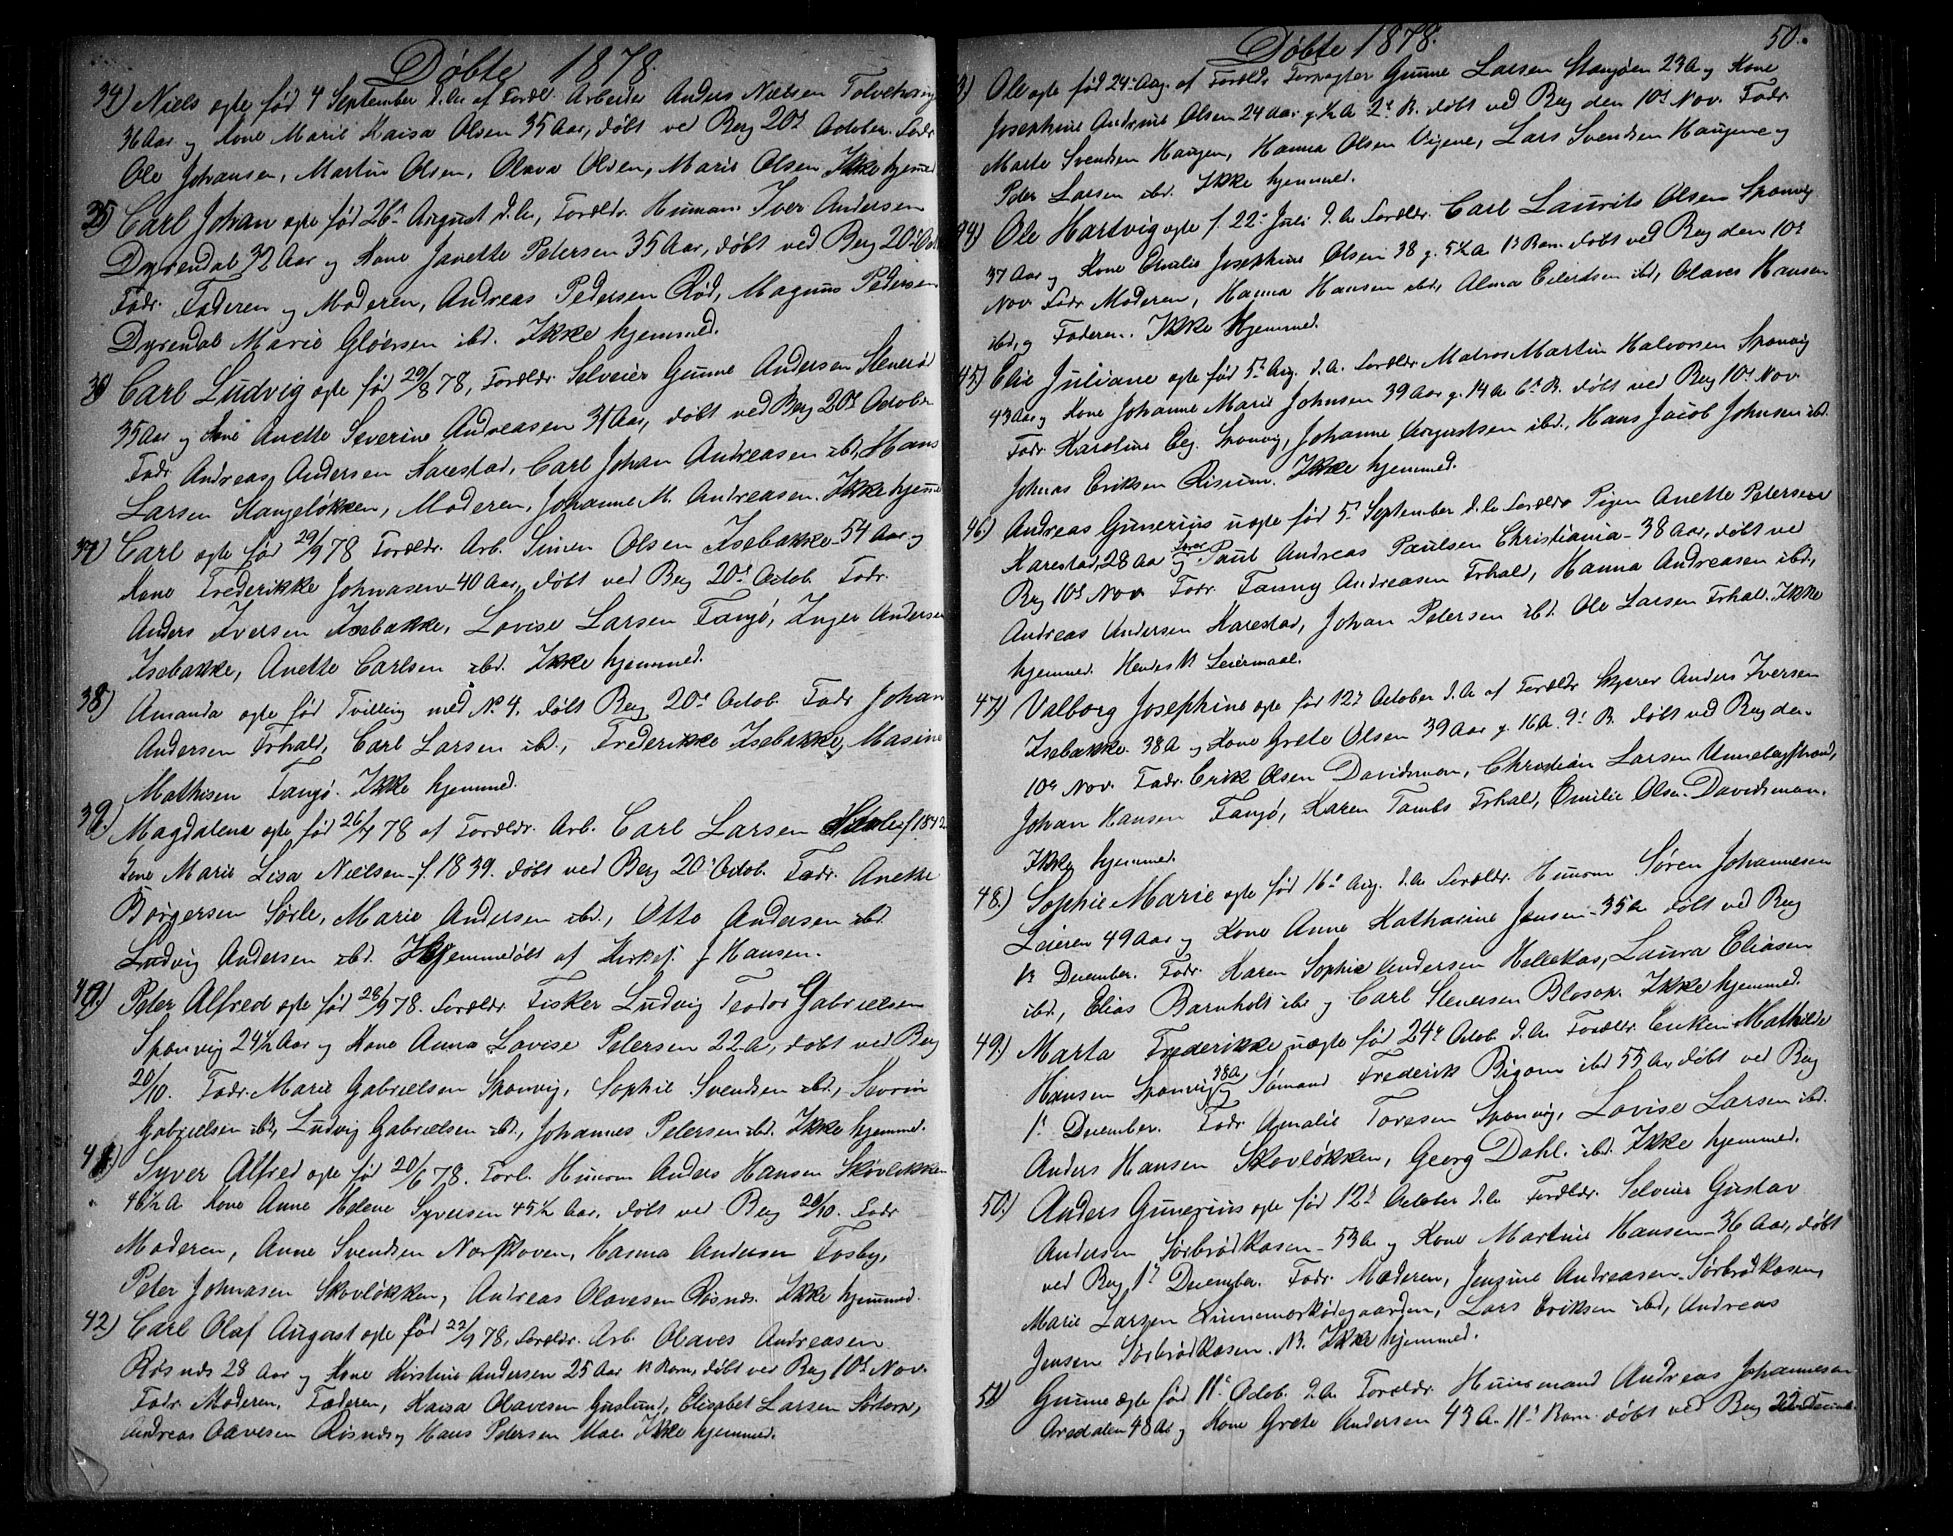 Døbte 1878.
34) Niels egte født 4 September d.A. af Foreldr. Arbeider Anders Nielsen
36 Aar og Kone Marie Kaisa Olsen 35 Aar, døbt ved Berg 20de October. Fadr
Ole Johansen, Martin Olsen, Olava Olsen, Marie Olsen Ikke hjemmed
35) Carl Johan egte fød 26de August d.A., Foreldr. Husman. Iver Andersen
Dyrendal 32 Aar og Kone Janette Petersen 35 Aar, døbt ved Berg 20de Oct
Fadr. Faderen og Moderen, Andreas Pedersen Rød, Magnus Pedersen
Dyrendal Marie Gløersen ibd. Ikke hjemmed.
36 Carl Ludvig egte fød 29/8 78, Foreldr. Selveier Gunne Andersen Stenerød
35 Aar og Kone Anette Severine Andreasen 31 Aar, døbt ved Berg 20de October
Fadr. Andreas Andersen Karestad, Carl Johan Andreasen ibd, Hans
Larsen Stangeløkken, Moderen, Johanne M. Andreasen. Ikke hjemme
37) Carl egte fød 29/9 78 Foreldr. Arb. Simen Olsen Isebakke 54 Aar og
Kone Frederikke Johnasen 40 Aar, døbt ved Berg 20de Octob. Fadr.
Anders Iversen Isebakke, Lovise Larsen Tangø, Inger Andersen
Isebakke, Anette Carlsen ibd. Ikke hjemmed.
38) Amanda egte fød Tvilling med No 4. døbt Berg 20de Octob. Fadr Johan
Andersen Frhald, Carl Larsen ibd, Frederikke Isebakke, Masine
Mathisen Tangø. Ikke hjemmed.
39.) Magdalena egte fød 26/7 78 af Foreldr. Arb. Carl Larsen f 1842
Kone Marie Lisa Nielsen f. 1839. døbt ved Berg 20de Octob. Fadr. Anette
Børgersen Sørle, Marie Andersen ibd, Otto Andersen ibd
Ludvig Andersen ibd. Hjemmedøbt af Kirkes. J Hansen.
40.) Peter Alfred egte fød 28/9 78. Foreldr. Fisker Ludvig Teodor Gabrielsen
Sponvig 24½ Aar og Kone Anna Lovise Petersen 22 A, døbt ved Berg
20/10. Fadr. Marie Gabrielsen Sponvig, Sophie Svendsen ibd, Severin
Gabrielsen ibd, Ludvig Gabrielsen ibd, Johannes Petersen ibd. Ikke hjemmed.
41) Syver Alfred egte fød 20/6 78. Forl. Husm Anders Hansen Skovløkken
46½ A Kone Anne Helene Syversen 45½ Aar. døbt ved Berg 20/10. Fadr
Moderen, Anne Svendsen Norskoven, Hanna Andersen Fosby,
Peter Johnasen Skovløkken, Andreas Olavesen Risnes. Ikke hjemmed.
42) Carl Olaf August egte fød 22/9 78, Foreldr. Arb. Olaves Andreasen
Røsnes 28 Aar og Kone Kirstine Andersen 25 Aar Barn, døbt ved Berg 10de Nov.
Fadr. Moderen, Faderen, Kaisa Olavesen Elisabet Larsen
Andreas Olavesen Røsnes og Hans Petersen Ikke hjemmed.
Døbte 1878. 50.
3) Ole egte fød 24de Aug. af Foreldr. Forpagter Gunne Larsen Stangøen 23 A og Kone
Josephine Andrine Olsen 24 Aar g. ½ A 2de B. døbt ved Berg den 10de Nov. Fadr.
Marte Svendsen Haugen, Hanna Olsen Vigene, Lars Svendsen Haugene og
Peter Larsen ibd. Ikke hjemmed.
44) Ole Hartvig egte f. 22de Juli d.A. Foreldr. Carl Laurits Olsen Sponvig
37 Aar og Kone Emilie Josephine Olsen 38 g. 5½ A 1st Barn døbt ved Berg den 10de
Nov. Fadr Moderen, Hanna Hansen ibd, Alma Eilertsen ibd, Olaves Hansen
ibd, og Faderen. Ikke Hjemmed.
45) Elie Juliane egte fød 5te Aug. d.A. Foreldr. Matros Martin Halvorsen Sponvig
43 Aar og Kone Johanne Marie Johnsen 39 Aar g. 14 A 6te B. døbt ved Berg 10de Nov.
Fadr. Karoline Eeg. Sponvig, Johanne Augustsen ibd, Hans Jacob Johnsen ibd.
Johnas Eriksen Risum. Ikke hjemmed.
46) Andreas Gunerius uegte fød 5te September d.A. Foreldre Pigen Anette Petersen
Karestad, 28 Aar og Paul Andreas Paulsen Christiania 38 Aar, døbt ved
Berg 10de Nov. Fadr. Fanny Andreasen Frhald, Hanna Andreasen ibd,
Andreas Andersen Karestad, Johan Petersen ibd. Ole Larsen Frhal. Ikke
hjemmed. Hendes Leiermaal.
47) Valborg Josephine egte fød 12te October d.A. af Foreldr Skyper Anders Iversen
Isebakke 38 A og Kone Grete Olsen 39 Aar g. 16 A. 9de B. døbt ved Berg den
10de Nov. Fadr. Erik Olsen Davidsmon, Christian Larsen Unnebergstrand,
Johan Hansen Tangø, Karen Tambs Frhal, Emilie Olsen Davidsmon.
Ikke hjemmed.
48.) Sophie Marie egte fød 16de Aug. d.A. Foreldr. Husm Søren Johannesen
Leieren 49 Aar og Kone Anne Katharine Jensen 35 A døbt ved Berg
1ste December. Fadr. Karen Sophie Andersen Hellekas, Laura Eliasen
ibd, Elias Barnholt ibr og Carl Stenersen Blosop. Ikke hjemmed.
49) Marta Frederikke uegte fød 24de Octob d.A. Foreldr. Enken Mathilde
Hansen Sponvig 38 A og Sømand Frederik Bigom ibd 55 A, døbt ved Berg
1ste December. Fadr Amalie Toresen Sponvig, Lovise Larsen ibd.
Anders Hansen Skovløkken, Georg Dahl. ibd. Ikke hjemmed.
50.) Anders Gunerius egte fød 12te October d.A. Foreldr. Selveier Gustav
Andersen Sørbrødkasen 53 A og Kone Martine Hansen 36 Aar, døbt
ved Berg 1ste December. Fadr. Moderen, Jensine Andreasen Sørbrødkasen,
Marie Larsen Lars Eriksen ibd, Andreas
Jensen Sørbrødkasen. Ikke hjemmed.
51 Gunne egte fød 11te Octob. d.A. Foreldr. Huusmand Andreas Johannesen
48 Aar og Kone Grete Andersen 43 A. 11te Barn døbt ved Berg 22de Decemb